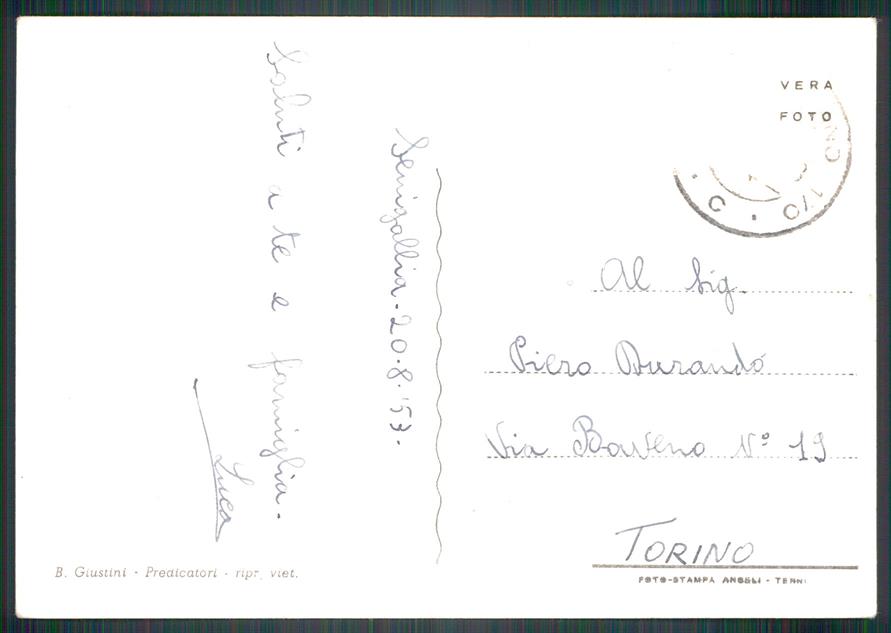 Senigallia - 20.8.'53.
Saluti a te e famiglia.
Luca
B. Giustini - Predicatori - ripr. viet.
VERA
FOTO
Al Sig.
Piero Durando
Via Baveno Nº 19
TORINO
FOTO-STAMPA ANGELI - TERNI